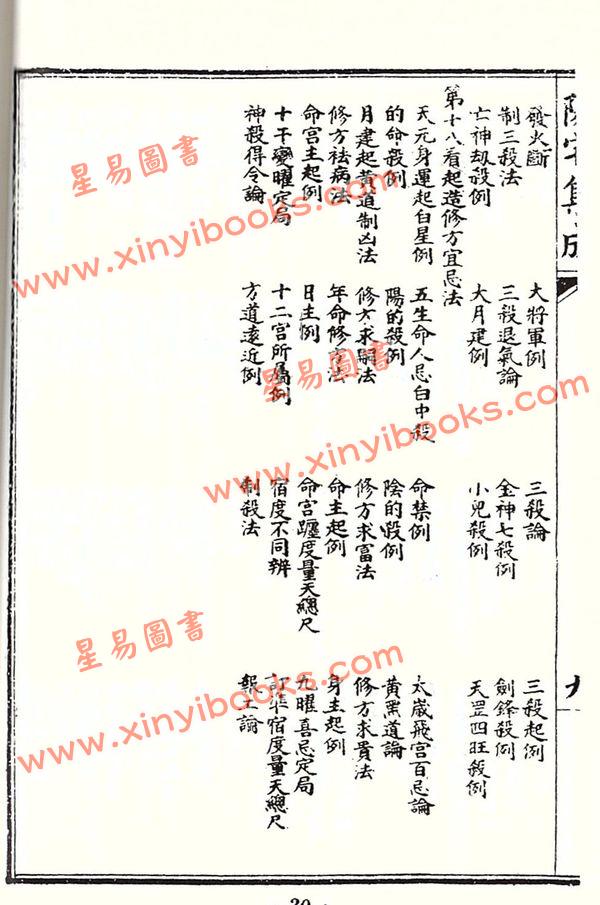 陽宅集成
發火斷 大將軍例 三殺論 三殺起例
制三殺法 三殺退氣論 金神七殺例 劍鋒殺例
亡神劫殺例 大月建例 小兒殺例 天罡四旺殺例
第十八看起造修方宜忌法
天元身運起白星例 五生命人忌白中殺 命禁例 太歲飛宮百忌論
的命殺例 陽的殺例 陰的殺例 黃黑道論
月建起黃道制凶法 修方求嗣法 修方求富法 修方求貴法
修方祛病法 年命修方法 命主起例 身主起例
命宮主起例 日主例 命宮躔度量天總尺 九曜喜忌定局
十干變曜定局 十二宮所屬例 宿度不同辨 宿度量天總尺
神殺得令論 方道遠近例 制殺法 論
20
星易圖書
www.xinyibooks.com
星易圖書
www.xinyibooks.com
星易圖書
www.xinyibooks.com